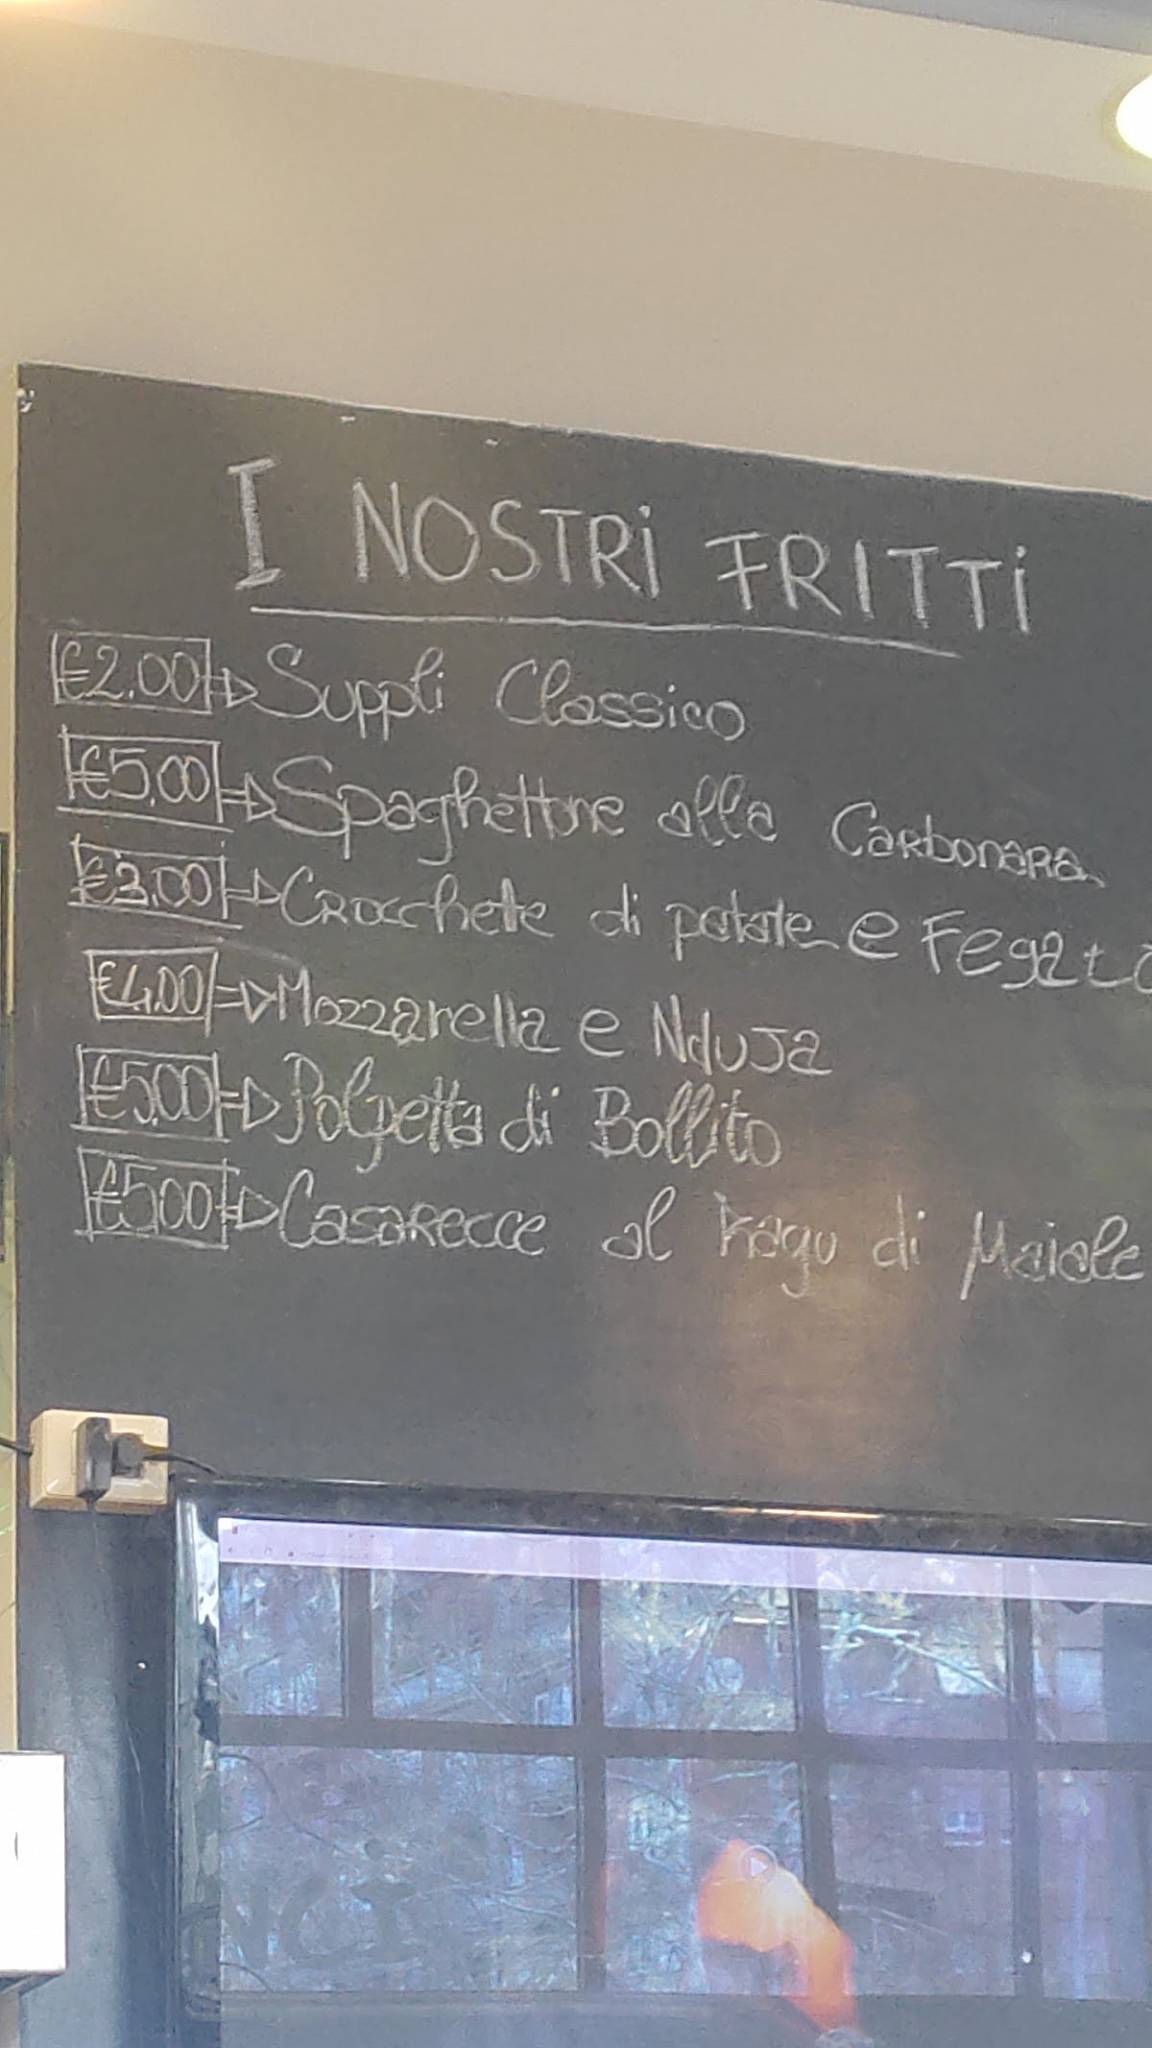 I NOSTRi FRITTi
€2.00 Suppli Classico
€5.00 Spaghettone alla Carbonara
€3.00 Crocchette di patate e Fegato
€4.00 Mozzarella e Nduja
€5.00 Polpetta di Bollito
€5.00 Casarecce al Ragu di Maiale